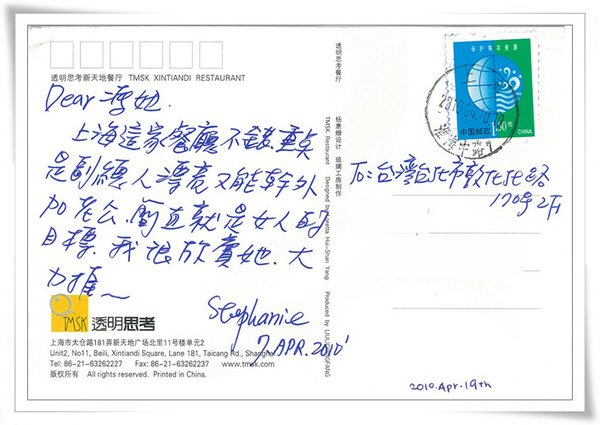 透明思考新天地餐厅 TMSK XINTIANDI RESTAURANT
Dear 海妞.
上海這家餐廳不錯, 重點
是副總人漂亮又能幹外
加老公, 簡直就是女人的
目標. 我很欣賞她. 大
力推~
Stephanie
7.APR.2010'
TMSK 透明思考
上海市太仓路181弄新天地广场北里11号楼单元2
Unit2, No11, Beili, Xintiandi Square, Lane 181, Taicang Rd., Shanghai
Tel: 86-21-63262227 Fax: 86-21-63262237 www.tmsk.com
版权所有 All rights reserved. Printed in China.
杨惠姗设计 琉璃工房制作
TMSK Restaurant Designed by Loretta Hui-Shan Yang Produced by LIULIGONGFANG
保护海洋资源
中国邮政
1.50元
CHINA
To: 台灣台北市敦化北路
170号2F
2010.Apr.19th